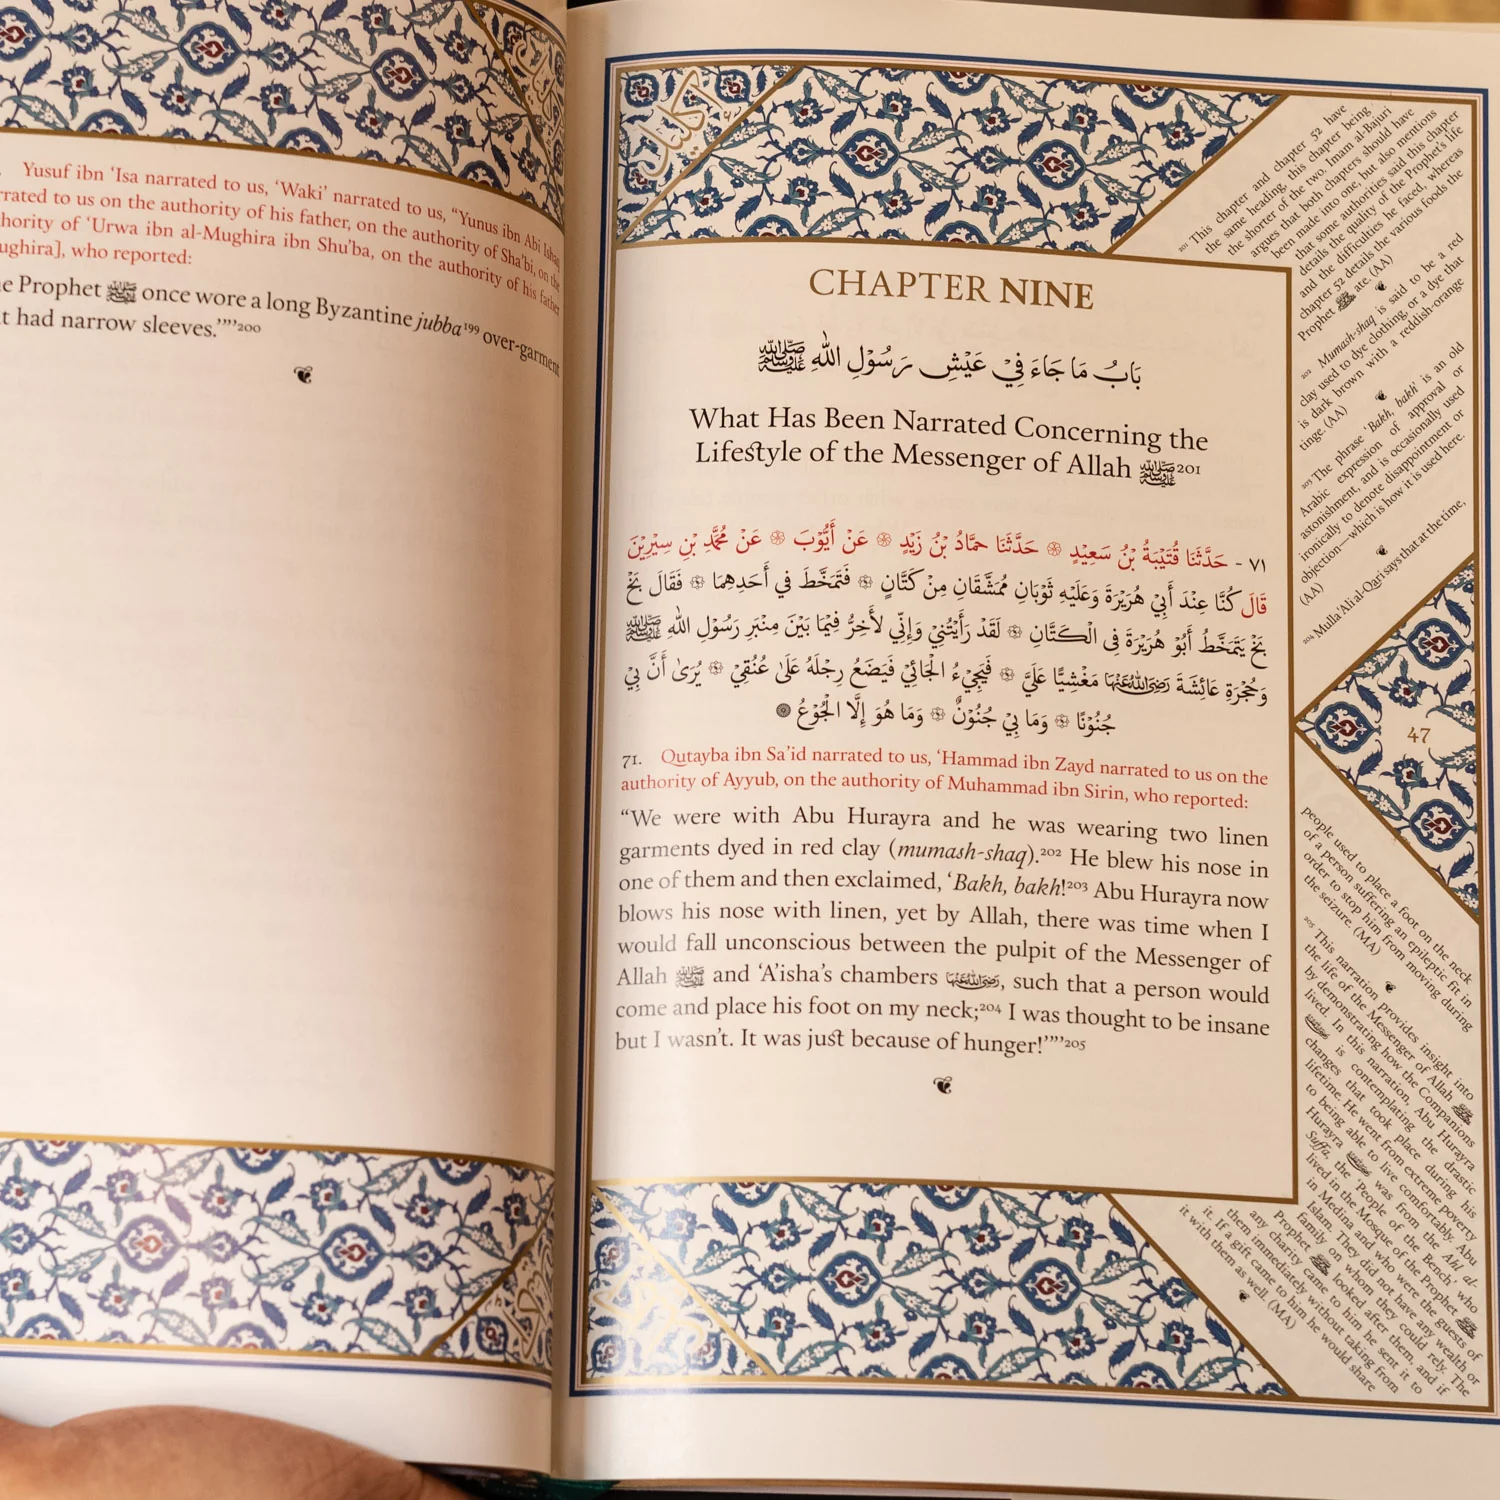 Yusuf ibn ‘Isa narrated to us, ‘Waki’ narrated to us, “Yunus ibn Abi Ishaq
rrated to us on the authority of his father, on the authority of Sha’bi, on the
hority of ‘Urwa ibn al-Mughira ibn Shu’ba, on the authority of his father
ughira], who reported:
e Prophet ﷺ once wore a long Byzantine jubba¹⁹⁹ over-garment
t had narrow sleeves.’”’²⁰⁰
CHAPTER NINE
بَابُ مَا جَاءَ فِيْ عَيْشِ رَسُوْلِ اللهِ ﷺ
What Has Been Narrated Concerning the
Lifestyle of the Messenger of Allah ﷺ²⁰¹
٧١ - حَدَّثَنَا قُتَيْبَةُ بْنُ سَعِيْدٍ ۞ حَدَّثَنَا حَمَّادُ بْنُ زَيْدٍ ۞ عَنْ أَيُّوْبَ ۞ عَنْ مُحَمَّدِ بْنِ سِيْرِيْنَ
قَالَ كُنَّا عِنْدَ أَبِيْ هُرَيْرَةَ وَعَلَيْهِ ثَوْبَانِ مُمَشَّقَانِ مِنْ كَتَّانٍ ۞ فَتَمَخَّطَ فِي أَحَدِهِمَا ۞ فَقَالَ بَخْ
بَخْ يَتَمَخَّطُ أَبُوْ هُرَيْرَةَ فِى الْكَتَّانِ ۞ لَقَدْ رَأَيْتُنِيْ وَإِنِّي لَأَخِرُّ فِيْمَا بَيْنَ مِنْبَرِ رَسُوْلِ اللهِ ﷺ
وَحُجْرَةِ عَائِشَةَ رَضِيَ اللهُ عَنْهَا مَغْشِيًّا عَلَيَّ ۞ فَيَجِيْءُ الْجَائِيْ فَيَضَعُ رِجْلَهُ عَلَىٰ عُنُقِيْ ۞ يُرَىٰ أَنَّ بِيْ
جُنُوْنًا ۞ وَمَا بِيْ جُنُوْنٌ ۞ وَمَا هُوَ إِلَّا الْجُوْعُ
71. Qutayba ibn Sa’id narrated to us, ‘Hammad ibn Zayd narrated to us on the
authority of Ayyub, on the authority of Muhammad ibn Sirin, who reported:
“We were with Abu Hurayra and he was wearing two linen
garments dyed in red clay (mumash-shaq).²⁰² He blew his nose in
one of them and then exclaimed, ‘Bakh, bakh!²⁰³ Abu Hurayra now
blows his nose with linen, yet by Allah, there was time when I
would fall unconscious between the pulpit of the Messenger of
Allah ﷺ and ‘A’isha’s chambers رَضِيَ اللهُ عَنْهَا, such that a person would
come and place his foot on my neck;²⁰⁴ I was thought to be insane
but I wasn’t. It was just because of hunger!’”’²⁰⁵
²⁰¹ This chapter and chapter 52 have
the same heading, this chapter being
the shorter of the two. Imam al-Bajuri
argues that both chapters should have
been made into one, but also mentions
that some authorities said this chapter
details the quality of the Prophet’s life
and the difficulties he faced, whereas
chapter 52 details the various foods the
Prophet ﷺ ate. (AA)
²⁰² Mumash-shaq is said to be a red
clay used to dye clothing, or a dye that
is dark brown with a reddish-orange
tinge. (AA)
²⁰³ The phrase ‘Bakh, bakh’ is an old
Arabic expression of approval or
astonishment, and is occasionally used
ironically to denote disappointment or
objection—which is how it is used here.
(AA)
²⁰⁴ Mulla ‘Ali al-Qari says that at the time,
47
people used to place a foot on the neck
of a person suffering an epileptic fit in
order to stop him from moving during
the seizure. (MA)
²⁰⁵ This narration provides insight into
the life of the Messenger of Allah ﷺ
by demonstrating how the Companions
lived. In this narration, Abu Hurayra
is contemplating the drastic
changes that took place during his
lifetime. He went from extreme poverty
to being able to live comfortably. Abu
Hurayra was from the Ahl al-
Suffa, the ‘People of the Bench’ who
lived in the Mosque of the Prophet ﷺ
in Medina and who were the guests of
Islam. They did not have any wealth, or
family on whom they could rely. The
Prophet ﷺ looked after them, and if
any charity came to him he sent it to
them immediately without taking from
it. If a gift came to him he would share
it with them as well. (MA)